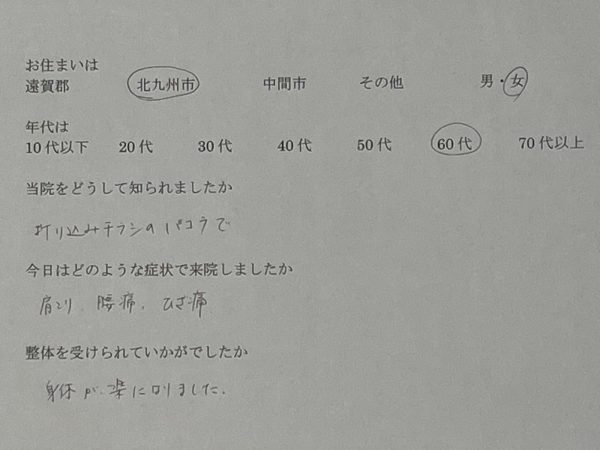 お住まいは
遠賀郡 北九州市 中間市 その他 男・女
年代は
10代以下 20代 30代 40代 50代 60代 70代以上
当院をどうして知られましたか
折り込みチラシのパコラで
今日はどのような症状で来院しましたか
肩こり、腰痛、ひざ痛
整体を受けられていかがでしたか
身体が楽になりました。